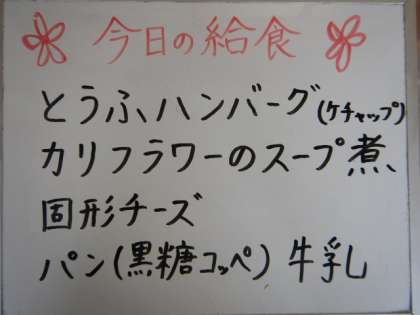 今日の給食
とうふハンバーグ(ケチャップ)
カリフラワーのスープ煮、
固形チーズ
パン(黒糖コッペ) 牛乳